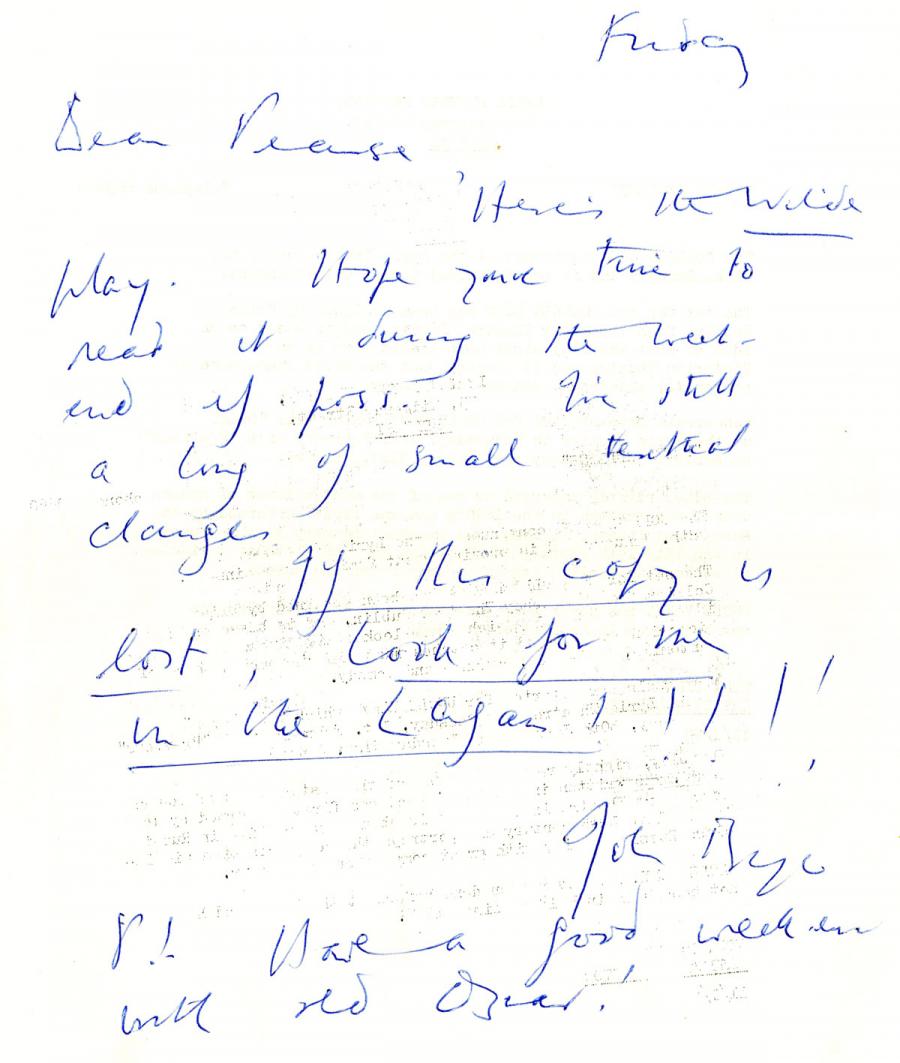 Friday
Dear Pearse
'Here's the Wilde
play. Hope you've time to
read it during the week-
end if poss. I've still
a long of small textual
changes
If this copy is
lost, look for me
in the Lagan!!!!!!
John Boyd
P.S. Have a good week-en
with old Oscar!